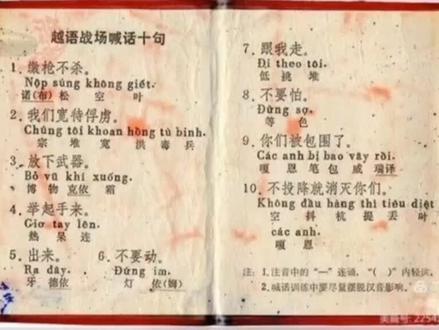 越语战场喊话十句
1. 缴枪不杀。
Nộp súng không giết.
诺(布) 松 空 叶
2. 我们宽待俘虏。
Chúng tôi khoan hồng tù binh.
宗 堆 宽 洪 毒 兵
3. 放下武器。
Bỏ vũ khí xuống.
博 物 克依 霜
4. 举起手来。
Giơ tay lên.
热 呆 连
5. 出来。 6. 不要动。
Ra đây. Đứng im.
牙 德依 灯 依(姆)
7. 跟我走。
Đi theo tôi.
低 挑 堆
8. 不要怕。
Đừng sợ.
等 色
9. 你们被包围了。
Các anh bị bao vây rồi.
嘎 恩 笔 包 威 瑞译
10. 不投降就消灭你们。
Không đầu hàng thì tiêu diệt
空 抖 杭 提 丢 叶
các anh.
嘎 恩
注: 1. 注音中的"一"连诵,"( )"内轻读。
2. 喊话训练中要尽量摆脱汉音影响。